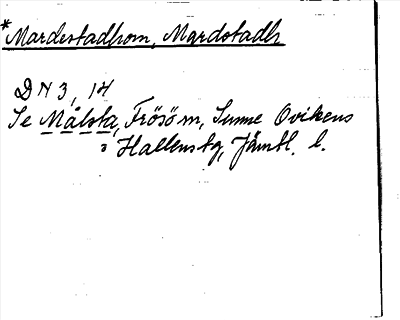 *Mardestadhom, Mardstadh
DN 3, 14
Se Målsta, Frösö sn, Sunne Ovikens
o Hallens tg, Jämtl. l.